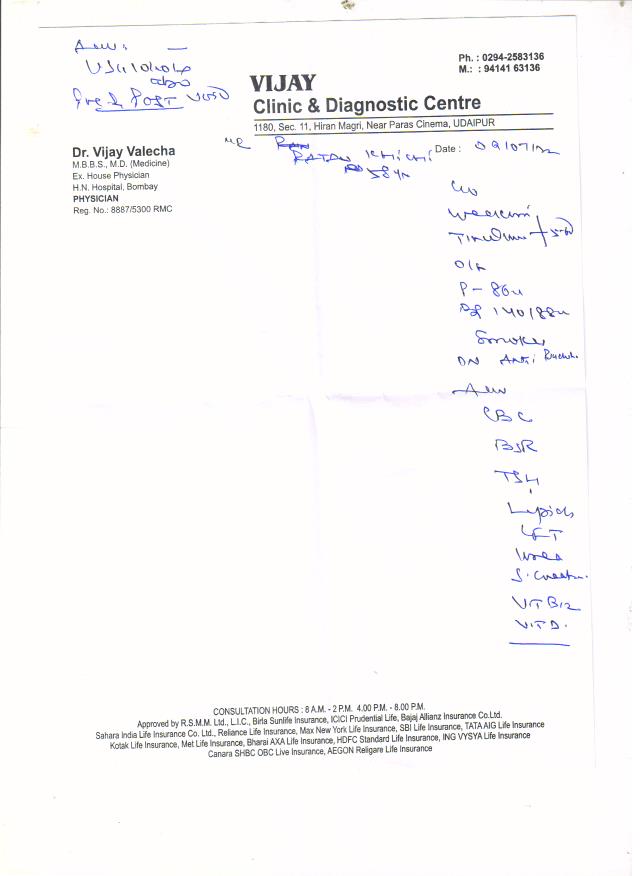 Adv: —
USG
Pre & Post void
Ph. : 0294-2583136
M.: : 94141 63136
VIJAY
Clinic & Diagnostic Centre
1180, Sec. 11, Hiran Magri, Near Paras Cinema, UDAIPUR
Dr. Vijay Valecha
M.B.B.S., M.D. (Medicine)
Ex. House Physician
H.N. Hospital, Bombay
PHYSICIAN
Reg. No.: 8887/5300 RMC
Mr RATAN
58 yr
Date :
C/o
Weakness
O/E
P - 86
140/88
Smoker
Adv
CBC
BSR
TSH
Lipids
LFT
Urea
S. Creatin.
VIT B12
VIT D.
CONSULTATION HOURS : 8 A.M. - 2 P.M. 4.00 P.M. - 8.00 P.M.
Approved by R.S.M.M. Ltd., L.I.C., Birla Sunlife Insurance, ICICI Prudential Life, Bajaj Allianz Insurance Co.Ltd.
Sahara India Life Insurance Co. Ltd., Reliance Life Insurance, Max New York Life Insurance, SBI Life Insurance, TATA AIG Life Insurance
Kotak Life Insurance, Met Life Insurance, Bharai AXA Life Insurance, HDFC Standard Life Insurance, ING VYSYA Life Insurance
Canara SHBC OBC Live Insurance, AEGON Religare Life Insurance